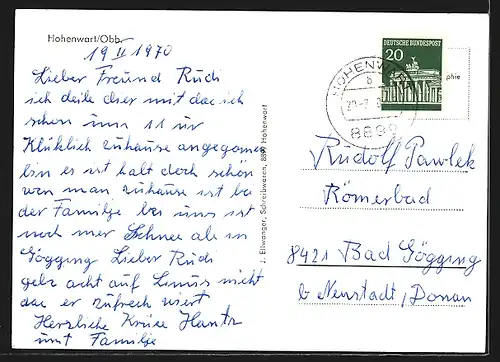 Hohenwart/Obb.
19 II 1970
Lieber Freund Rudi
ich deile dier mit das ich
schon um 11 ur
Klüklich zuhause angegomen
bin es ist halt doch schön
wen man zuhause ist bei
der Familje bei uns ist
noch mer Schnee als in
Gögging Lieber Rudi
geb acht auf Linus nicht
das er zufrech wiert
Herzliche Krüse Hantz
und Familje
J. Ellwanger, Schreibwaren, 8899 Hohenwart
DEUTSCHE BUNDESPOST
20
phie
HOHENWART
8899
Rudolf Pawlek
Römerbad
8421 Bad Gögging
b Neustadt, Donau